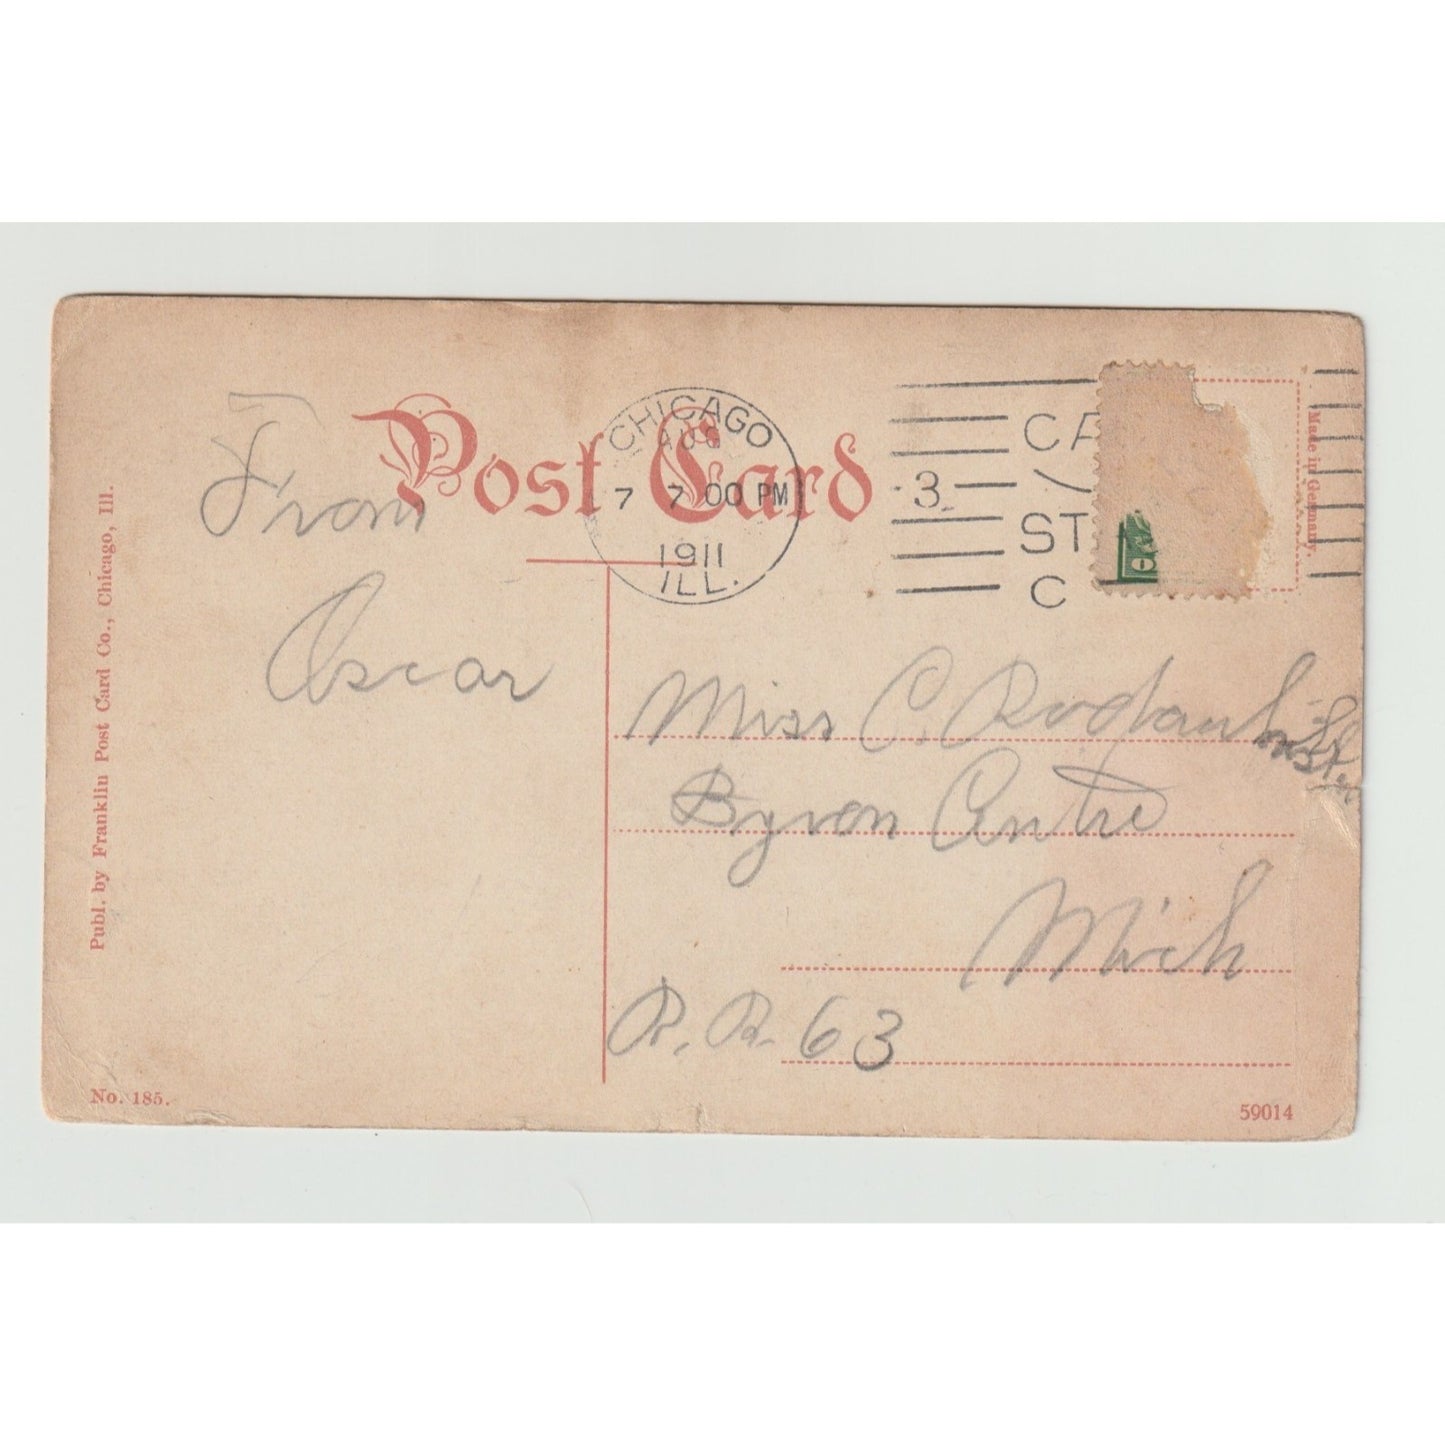 Post Card
From
Oscar
CHICAGO
AUG
7 7 00 PM
1911
ILL.
3
CA
ST
C
Made in Germany.
Miss C.
Byron Centre
Mich
R. R. 63
Publ. by Franklin Post Card Co., Chicago, Ill.
No. 185.
59014